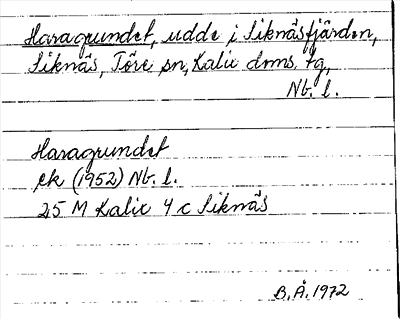 Haragrundet, udde i Siknäsfjärden,
Siknäs, Töre sn, Kalix dmns tg,
Nb. l.
Haragrundet
ek (1952) Nb. l.
25 M Kalix 4 c Siknäs
B.Å. 1972